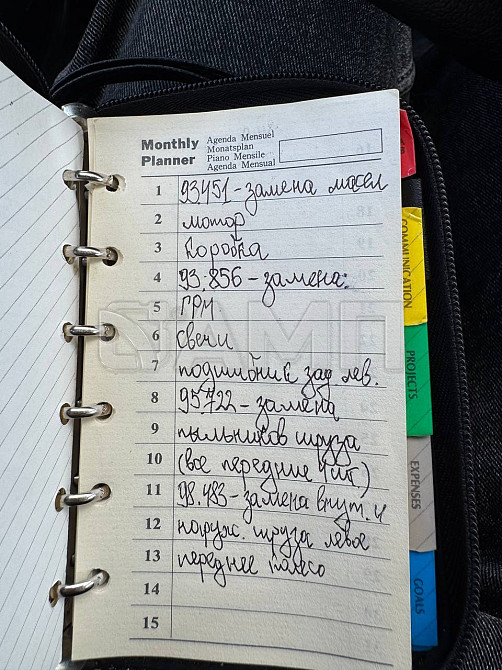 Monthly Planner
Agenda Mensuel
Monatsplan
Piano Mensile
Agenda Mensual
1 93451-замена масел
2 мотор
3 коробка
4 93.856-замена:
5 ГРМ
6 свечи
7 подшибник зад лев.
8 95722-замена
9 пыльников шруза
10 (все передние 4шт)
11 98.483-замена внут. и
12 наруж. шруза левое
13 переднее колесо
14
15
COMMUNICATION
PROJECTS
EXPENSES
GOALS